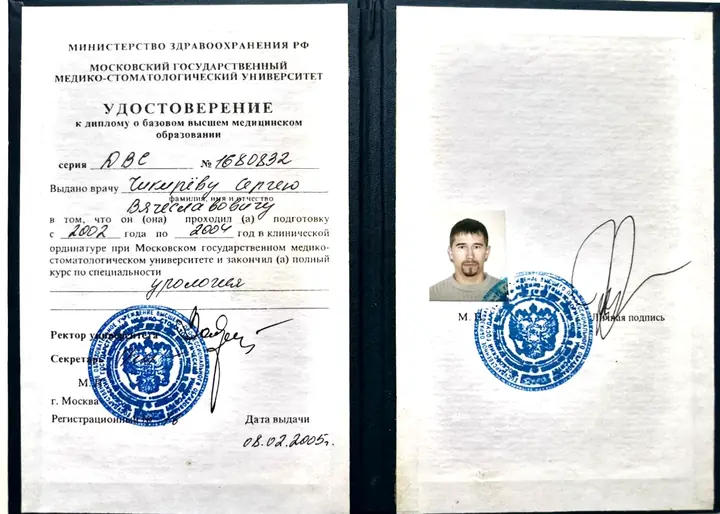 МИНИСТЕРСТВО ЗДРАВООХРАНЕНИЯ РФ
МОСКОВСКИЙ ГОСУДАРСТВЕННЫЙ
МЕДИКО-СТОМАТОЛОГИЧЕСКИЙ УНИВЕРСИТЕТ
УДОСТОВЕРЕНИЕ
к диплому о базовом высшем медицинском
образовании
серия ДВС № 1680832
Выдано врачу Чикирёву Сергею
фамилия, имя и отчество
Вячеславовичу
в том, что он (она) проходил (а) подготовку
с 2002 года по 2004 год в клинической
ординатуре при Московском государственном медико-
стоматологическом университете и закончил (а) полный
курс по специальности
урология
Ректор университета
Секретарь
М.
г. Москва
Регистрационный
Дата выдачи
08.02.2005г.
М.
Личная подпись